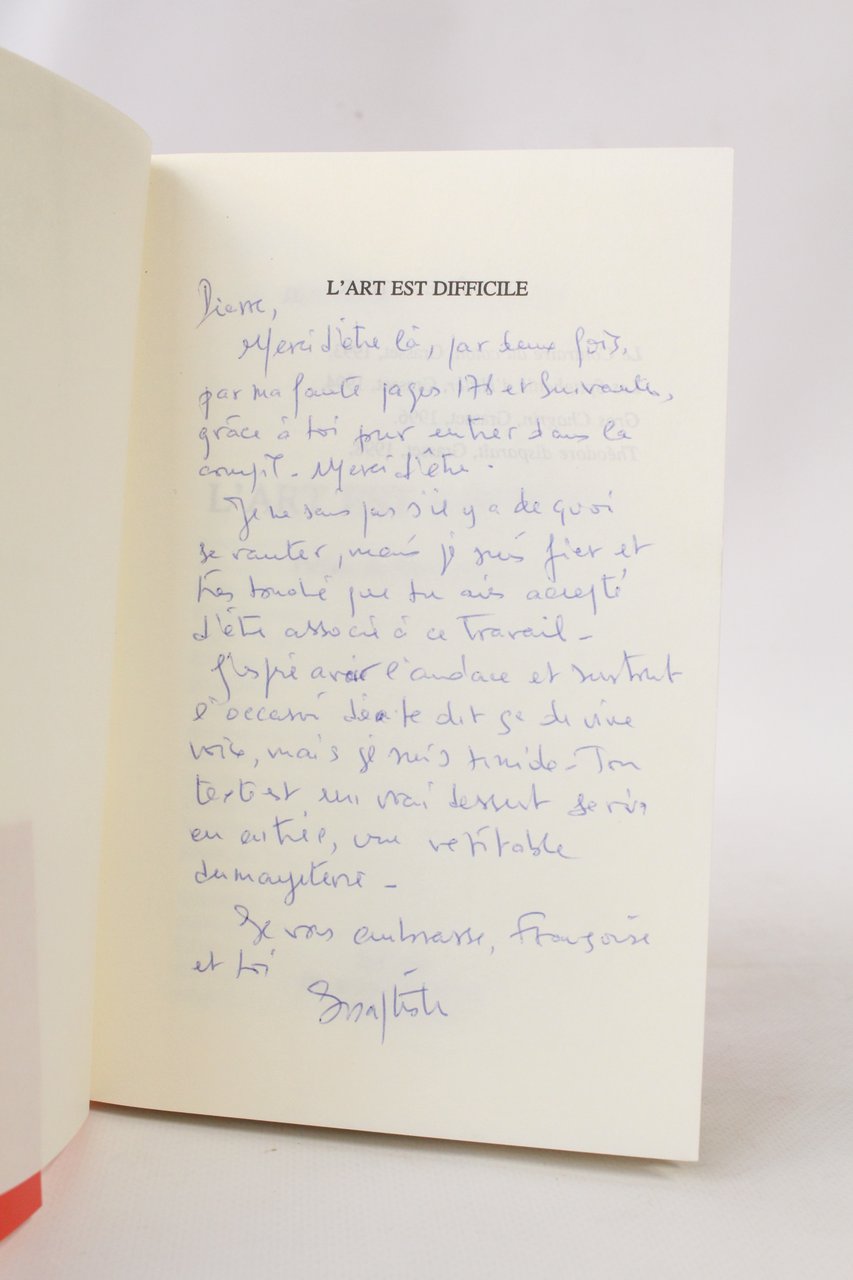 L'ART EST DIFFICILE
Pierre,
Merci d'être là, par deux fois,
par ma faute pages 176 et suivantes,
grâce à toi pour entrer dans la
compil. Merci d'être.
Je ne sais pas s'il y a de quoi
se vanter, mais je suis fier et
très touché que tu aies accepté
d'être associé à ce travail -
J'espère avoir l'audace et surtout
l'occasion de te dit ça de vive
voix, mais je suis timide - Ton
texte est un vrai dessert servi
en entrée, une véritable
-
Je vous embrasse, Françoise
et toi
Baptiste
Théodore disparaît, Grasset,